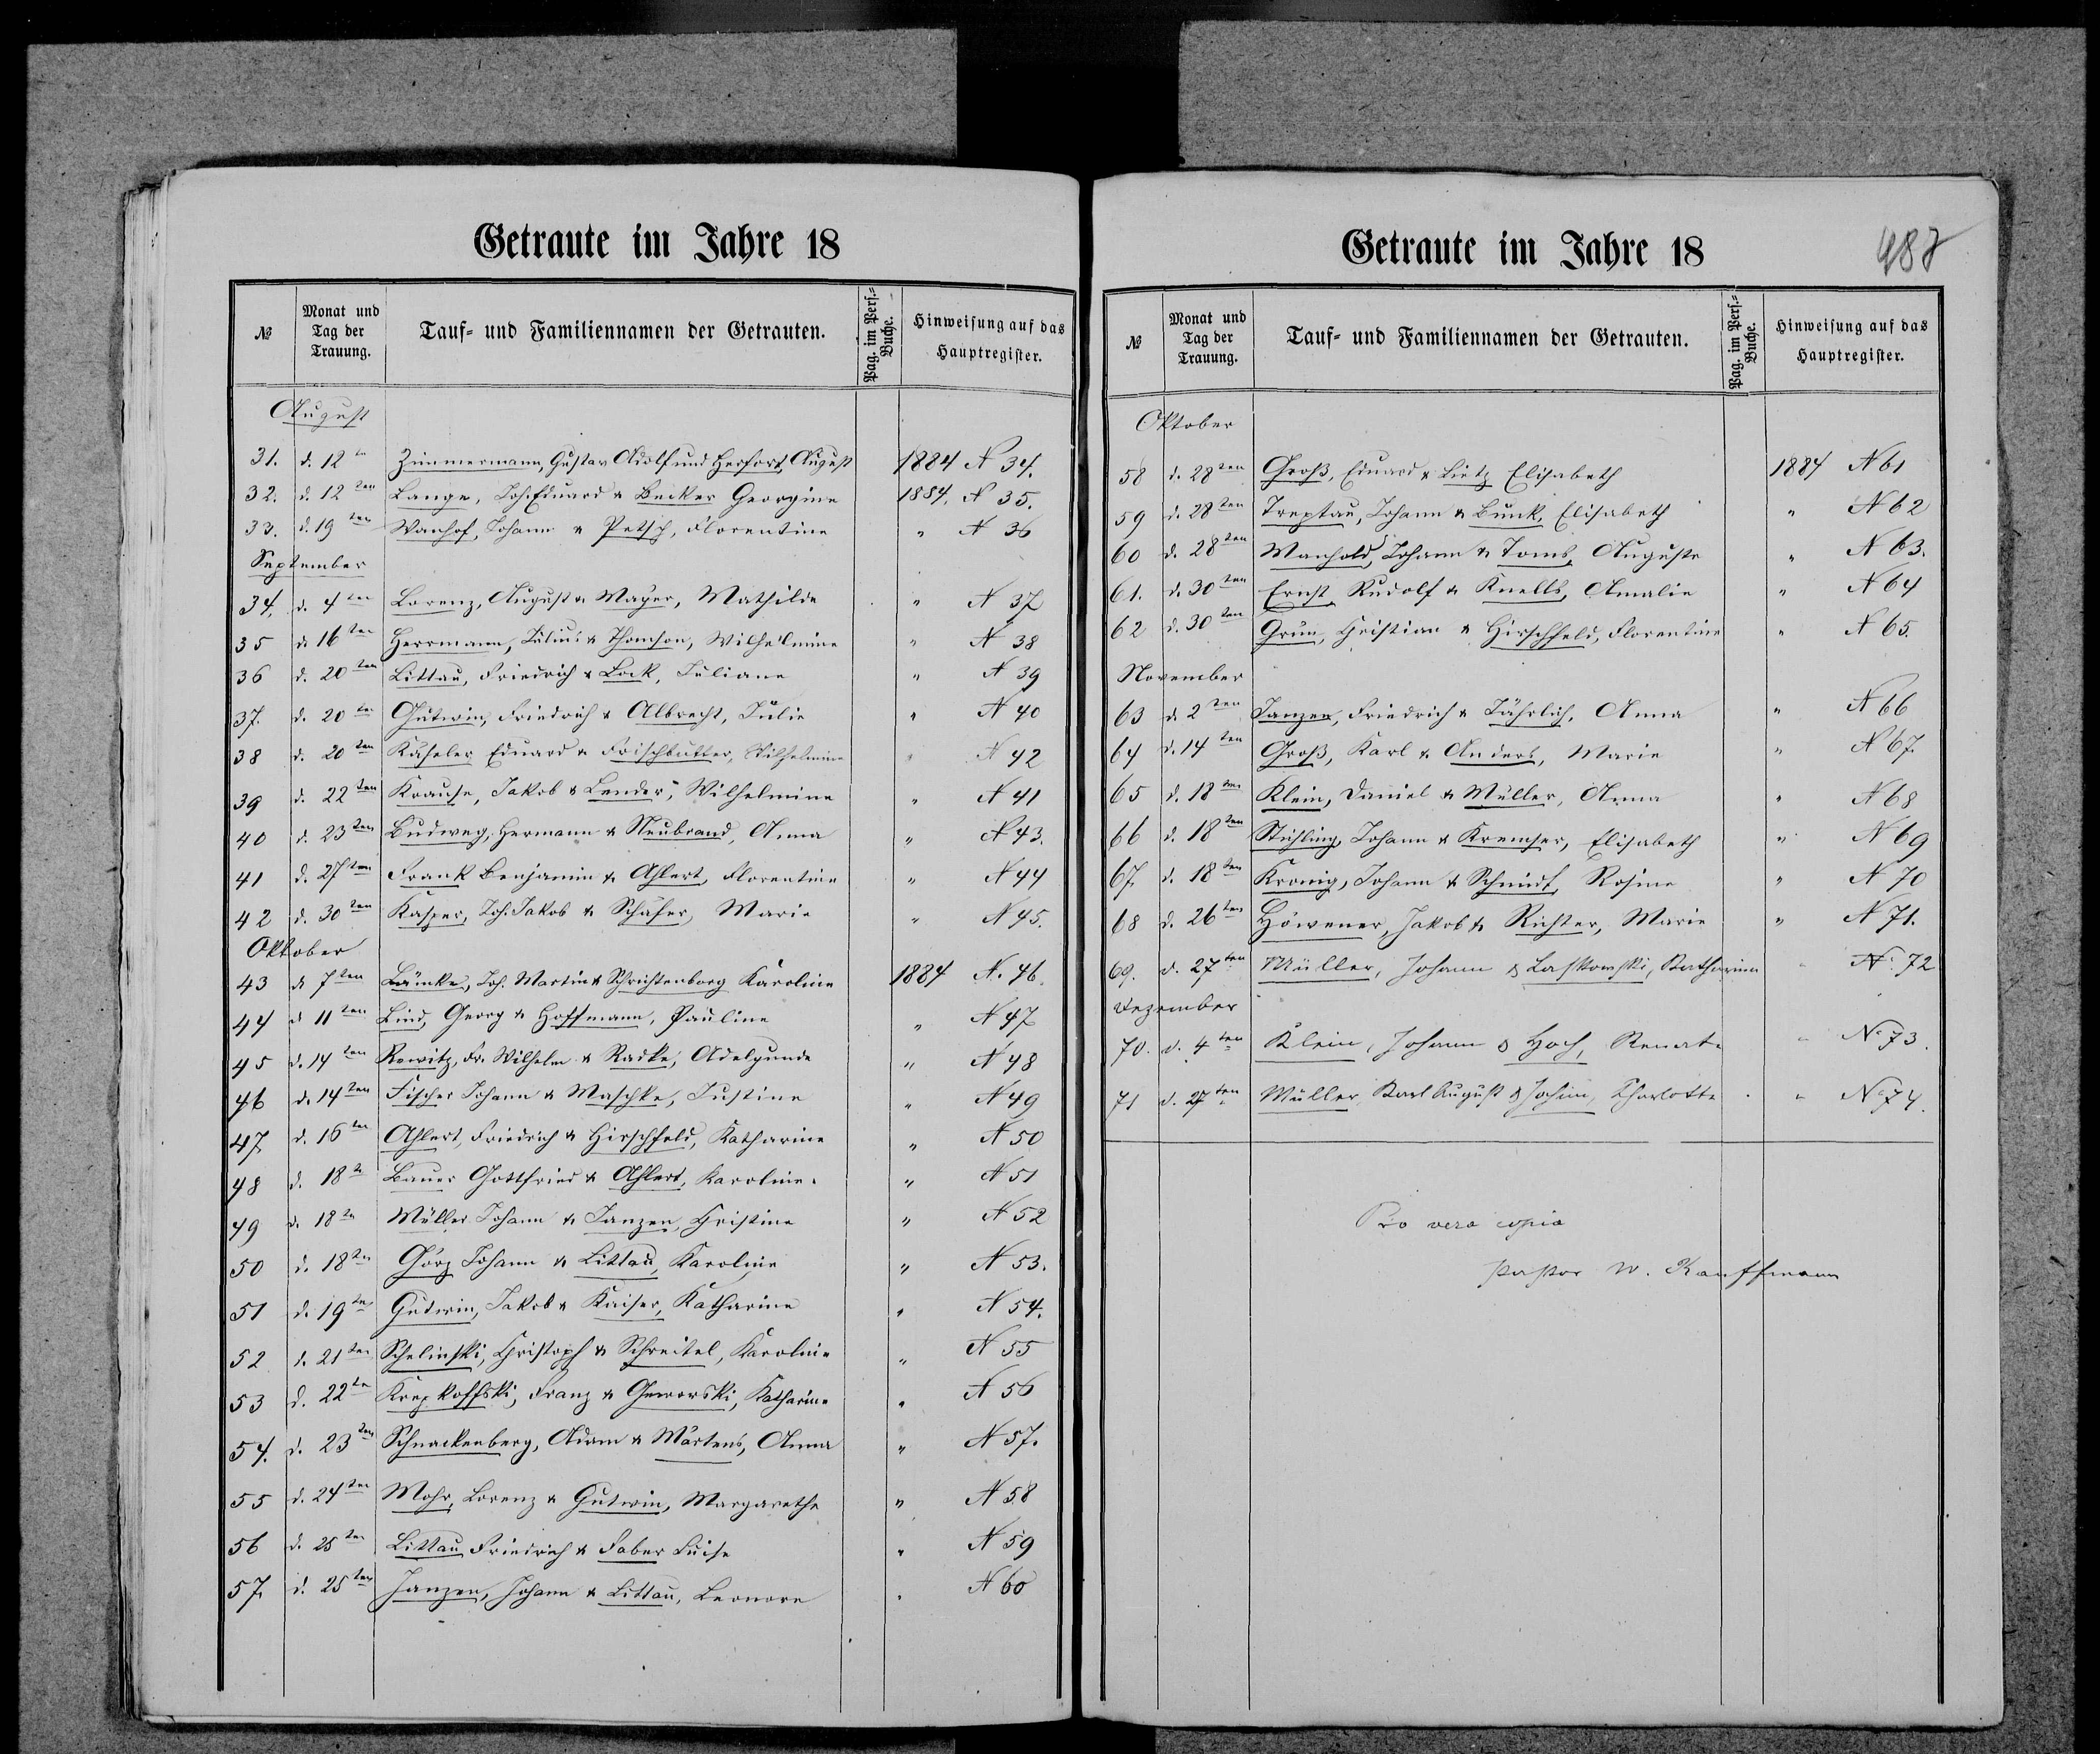 Getraute im Jahre 18
№ Monat und Tag der Trauung. Tauf- und Familiennamen der Getrauten. Pag. im Pers.-Buche. Hinweisung auf das Hauptregister.
August
31. d. 12 Zimmermann, Gustav Adolf und Herfort, August 1884 N 34.
32. d. 12 ten Lange, Joh. Eduard & Becker Georgine 1884. N 35.
33. d. 19 ten Wanhof, Johann & Petsch, Florentine " N 36
September
34. d. 4 ten Lorenz, August & Mayer, Mathilde " N 37
35 d. 16 ten Herrmann, Julius & Thomson, Wilhelmine " N 38
36 d. 20 ten Littau, Friedrich & Lock, Juliane " N 39
37. d. 20 ten Gutwin, Friedrich & Albrecht, Julie " N 40
38 d. 20 ten Käseler Eduard & Frischbutter, Wilhelmine " N 42
39 d. 22 ten Krause, Jakob & Lender, Wilhelmine " N 41
40 d. 23 ten Budweg, Hermann & Neubrand, Anna " N 43.
41 d. 27 ten Frank Benjamin & Ahlert, Florentine " N 44
42 d. 30 ten Kasper, Joh. Jakob & Schäfer, Marie " N 45.
Oktober
43 d. 7 ten Lämke, Joh. Martin & Schrichtenborg Karoline 1884 N. 46.
44 d 11 ten Lind, Georg & Hoffmann, Pauline " N 47
45 d. 14 ten Rewitz, Fr. Wilhelm & Radke, Adelgunde " N 48
46 d. 14 ten Fischer Johann & Maschke, Justine " N 49
47 d. 16 ten Ahlert, Friedrich & Hirschfeld, Katharine " N 50
48 d. 18 t Bauer Gottfried & Ahlert, Karoline. " N 51
49 d. 18 tn Müller Johann & Janzen, Christine " N 52
50 d. 18 ten Görz Johann & Littau, Karoline " N 53.
51 d. 19 ten Gutwin, Jakob & Kaiser, Katharine " N 54.
52 d. 21 ten Schelinski, Christoph & Schreitel, Karoline " N 55
53 d. 22 tn Krepkoffski, Franz & Gnewarski, Katharine " N 56
54. d. 23 ten Schnackenberg, Adam & Märtens, Anna " N 57.
55 d. 24 ten Mohr, Lorenz & Gutwin, Margarethe " N 58
56 d. 25 ten Littau Friedrich & Faber Luise " N 59
57. d. 25 ten Janzen, Johann & Littau, Leonore " N 60
Getraute im Jahre 18
487
№ Monat und Tag der Trauung. Tauf- und Familiennamen der Getrauten. Pag. im Pers.-Buche. Hinweisung auf das Hauptregister.
Oktober
58 d. 28 ten Groß, Eduard & Lietz Elisabeth 1884 N 61
59 d. 28 ten Treptau, Johann & Bunk, Elisabeth " N 62
60 d. 28 ten Manhold, Johann & Toms, Auguste " N 63.
61. d. 30 ten Ernst Rudolf & Knells, Amalie " N 64
62 d. 30 ten Grün, Christian & Hirschfeld, Florentine " N 65.
November
63 d. 2 ten Janzen, Friedrich & Jährlich, Anna " N 66
64 d. 14 ten Groß, Karl & Anders, Marie " N 67.
65 d. 18 ten Klein, Daniel & Müller, Anna " N 68
66 d. 18 ten Stühling, Johann & Kremser, Elisabeth " N 69
67. d. 18 ten Kronig, Johann & Schmidt, Rosine " N 70
68 d. 26 ten Höwener, Jakob & Richter, Marie " N 71.
69. d. 27 ten Müller, Johann & Laskowski, Katharina " N. 72
Dezember
70. d. 4 ten Klein, Johann & Hoch, Renate " N. 73.
71 d. 27 ten Müller Karl August & Johim, Charlotte " N. 74.
Pro vera copia
Pastor W. Kauffmann